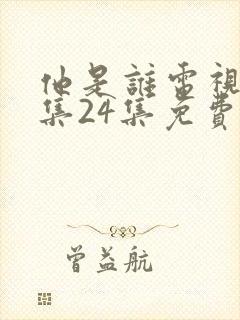 他是誰電視
集24集免費
曾益航